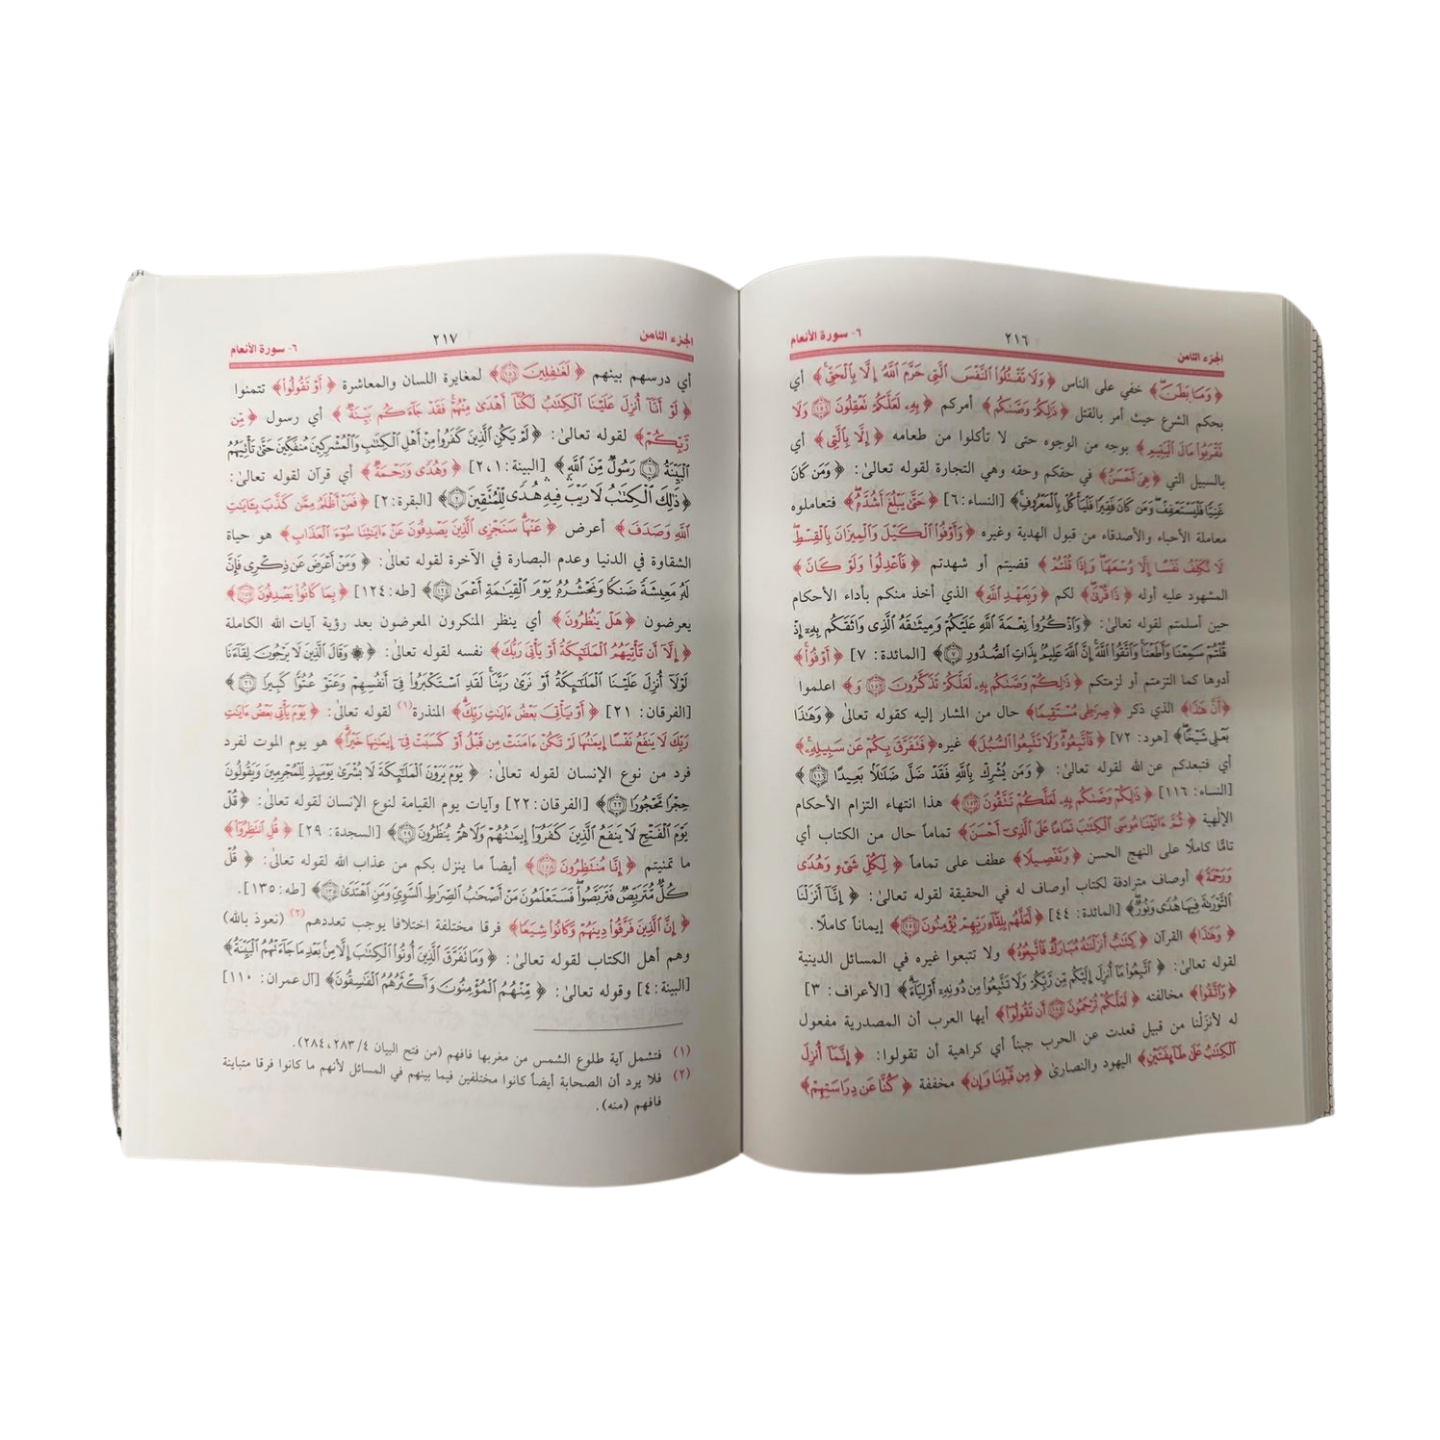 الجزء الثامن ٢١٦ ٦- سورة الأنعام
﴿وَمَا بَطَنَ﴾ خفي على الناس ﴿وَلَا تَقْتُلُوا۟ ٱلنَّفْسَ ٱلَّتِى حَرَّمَ ٱللَّهُ إِلَّا بِٱلْحَقِّ﴾ أي
بحكم الشرع حيث أمر بالقتل ﴿ذَٰلِكُمْ وَصَّىٰكُم﴾ أمركم ﴿بِهِۦ لَعَلَّكُمْ تَعْقِلُونَ ١٥١ وَلَا
تَقْرَبُوا۟ مَالَ ٱلْيَتِيمِ﴾ بوجه من الوجوه حتى لا تأكلوا من طعامه ﴿إِلَّا بِٱلَّتِى﴾ أي
بالسبيل التي ﴿هِىَ أَحْسَنُ﴾ في حقكم وحقه وهي التجارة لقوله تعالىٰ: ﴿وَمَن كَانَ
غَنِيًّا فَلْيَسْتَعْفِفْ وَمَن كَانَ فَقِيرًا فَلْيَأْكُلْ بِٱلْمَعْرُوفِ﴾ [النساء:٦] ﴿حَتَّىٰ يَبْلُغَ أَشُدَّهُۥ﴾ فتعاملوه
معاملة الأحباء والأصدقاء من قبول الهدية وغيره ﴿وَأَوْفُوا۟ ٱلْكَيْلَ وَٱلْمِيزَانَ بِٱلْقِسْطِ
لَا نُكَلِّفُ نَفْسًا إِلَّا وُسْعَهَا وَإِذَا قُلْتُمْ﴾ قضيتم أو شهدتم ﴿فَٱعْدِلُوا۟ وَلَوْ كَانَ﴾
المشهود عليه أوله ﴿ذَا قُرْبَىٰ﴾ لكم ﴿وَبِعَهْدِ ٱللَّهِ﴾ الذي أخذ منكم بأداء الأحكام
حين أسلمتم لقوله تعالىٰ: ﴿وَٱذْكُرُوا۟ نِعْمَةَ ٱللَّهِ عَلَيْكُمْ وَمِيثَٰقَهُ ٱلَّذِى وَاثَقَكُم بِهِۦٓ إِذْ
قُلْتُمْ سَمِعْنَا وَأَطَعْنَا وَٱتَّقُوا۟ ٱللَّهَ إِنَّ ٱللَّهَ عَلِيمٌۢ بِذَاتِ ٱلصُّدُورِ ٧﴾ [المائدة: ٧] ﴿أَوْفُوا۟﴾
أدوها كما التزمتم أو لزمتكم ﴿ذَٰلِكُمْ وَصَّىٰكُم بِهِۦ لَعَلَّكُمْ تَذَكَّرُونَ ١٥٢ وَ﴾ اعلموا
﴿أَنَّ هَٰذَا﴾ الذي ذكر ﴿صِرَٰطِى مُسْتَقِيمًا﴾ حال من المشار إليه كقوله تعالىٰ ﴿وَهَٰذَا
بَعْلِى شَيْخًا﴾ [هود: ٧٢] ﴿فَٱتَّبِعُوهُ وَلَا تَتَّبِعُوا۟ ٱلسُّبُلَ﴾ غيره ﴿فَتَفَرَّقَ بِكُمْ عَن سَبِيلِهِۦ﴾
أي فتبعدكم عن الله لقوله تعالىٰ: ﴿وَمَن يُشْرِكْ بِٱللَّهِ فَقَدْ ضَلَّ ضَلَٰلًۢا بَعِيدًا ١١٦﴾
[النساء: ١١٦] ﴿ذَٰلِكُمْ وَصَّىٰكُم بِهِۦ لَعَلَّكُمْ تَتَّقُونَ ١٥٣﴾ هذا انتهاء التزام الأحكام
الإلٰهية ﴿ثُمَّ ءَاتَيْنَا مُوسَى ٱلْكِتَٰبَ تَمَامًا عَلَى ٱلَّذِىٓ أَحْسَنَ﴾ تماماً حال من الكتاب أي
تامًّا كاملًا على النهج الحسن ﴿وَتَفْصِيلًا﴾ عطف على تماماً ﴿لِّكُلِّ شَىْءٍ وَهُدًى
وَرَحْمَةً﴾ أوصاف مترادفة لكتاب أوصاف له في الحقيقة لقوله تعالىٰ: ﴿إِنَّآ أَنزَلْنَا
ٱلتَّوْرَىٰةَ فِيهَا هُدًى وَنُورٌ﴾ [المائدة: ٤٤] ﴿لَّعَلَّهُم بِلِقَآءِ رَبِّهِمْ يُؤْمِنُونَ ١٥٤﴾ إيماناً كاملًا.
﴿وَهَٰذَا﴾ القرآن ﴿كِتَٰبٌ أَنزَلْنَٰهُ مُبَارَكٌ فَٱتَّبِعُوهُ﴾ ولا تتبعوا غيره في المسائل الدينية
لقوله تعالىٰ: ﴿ٱتَّبِعُوا۟ مَآ أُنزِلَ إِلَيْكُم مِّن رَّبِّكُمْ وَلَا تَتَّبِعُوا۟ مِن دُونِهِۦٓ أَوْلِيَآءَ﴾ [الأعراف: ٣]
﴿وَٱتَّقُوا۟﴾ مخالفته ﴿لَعَلَّكُمْ تُرْحَمُونَ ١٥٥ أَن تَقُولُوٓا۟﴾ أيها العرب أن المصدرية مفعول
له لأنزلنا من قبيل قعدت عن الحرب جبناً أي كراهية أن تقولوا: ﴿إِنَّمَآ أُنزِلَ
ٱلْكِتَٰبُ عَلَىٰ طَآئِفَتَيْنِ﴾ اليهود والنصارىٰ ﴿مِن قَبْلِنَا وَإِن﴾ مخففة ﴿كُنَّا عَن دِرَاسَتِهِمْ﴾
الجزء الثامن ٢١٧ ٦- سورة الأنعام
أي درسهم بينهم ﴿لَغَٰفِلِينَ ١٥٦﴾ لمغايرة اللسان والمعاشرة ﴿أَوْ تَقُولُوا۟﴾ تتمنوا
﴿لَوْ أَنَّآ أُنزِلَ عَلَيْنَا ٱلْكِتَٰبُ لَكُنَّآ أَهْدَىٰ مِنْهُمْ فَقَدْ جَآءَكُم بَيِّنَةٌ﴾ أي رسول ﴿مِّن
رَّبِّكُمْ﴾ لقوله تعالىٰ: ﴿لَمْ يَكُنِ ٱلَّذِينَ كَفَرُوا۟ مِنْ أَهْلِ ٱلْكِتَٰبِ وَٱلْمُشْرِكِينَ مُنفَكِّينَ حَتَّىٰ تَأْتِيَهُمُ
ٱلْبَيِّنَةُ ١ رَسُولٌ مِّنَ ٱللَّهِ﴾ [البينة:١،٢] ﴿وَهُدًى وَرَحْمَةٌ﴾ أي قرآن لقوله تعالىٰ:
﴿ذَٰلِكَ ٱلْكِتَٰبُ لَا رَيْبَ فِيهِ هُدًى لِّلْمُتَّقِينَ ٢﴾ [البقرة:٢] ﴿فَمَنْ أَظْلَمُ مِمَّن كَذَّبَ بِـَٔايَٰتِ
ٱللَّهِ وَصَدَفَ﴾ أعرض ﴿عَنْهَا سَنَجْزِى ٱلَّذِينَ يَصْدِفُونَ عَنْ ءَايَٰتِنَا سُوٓءَ ٱلْعَذَابِ﴾ هو حياة
الشقاوة في الدنيا وعدم البصارة في الآخرة لقوله تعالىٰ: ﴿وَمَنْ أَعْرَضَ عَن ذِكْرِى فَإِنَّ
لَهُۥ مَعِيشَةً ضَنكًا وَنَحْشُرُهُۥ يَوْمَ ٱلْقِيَٰمَةِ أَعْمَىٰ ١٢٤﴾ [طه:١٢٤] ﴿بِمَا كَانُوا۟ يَصْدِفُونَ ١٥٧﴾
يعرضون ﴿هَلْ يَنظُرُونَ﴾ أي ينظر المنكرون المعرضون بعد رؤية آيات الله الكاملة
﴿إِلَّآ أَن تَأْتِيَهُمُ ٱلْمَلَٰٓئِكَةُ أَوْ يَأْتِىَ رَبُّكَ﴾ نفسه لقوله تعالىٰ: ﴿۞ وَقَالَ ٱلَّذِينَ لَا يَرْجُونَ لِقَآءَنَا
لَوْلَآ أُنزِلَ عَلَيْنَا ٱلْمَلَٰٓئِكَةُ أَوْ نَرَىٰ رَبَّنَا لَقَدِ ٱسْتَكْبَرُوا۟ فِىٓ أَنفُسِهِمْ وَعَتَوْ عُتُوًّا كَبِيرًا ٢١﴾
[الفرقان: ٢١] ﴿أَوْ يَأْتِىَ بَعْضُ ءَايَٰتِ رَبِّكَ﴾ المنذرة(١) لقوله تعالىٰ: ﴿يَوْمَ يَأْتِى بَعْضُ ءَايَٰتِ
رَبِّكَ لَا يَنفَعُ نَفْسًا إِيمَٰنُهَا لَمْ تَكُنْ ءَامَنَتْ مِن قَبْلُ أَوْ كَسَبَتْ فِىٓ إِيمَٰنِهَا خَيْرًا﴾ هو يوم الموت لفرد
فرد من نوع الإنسان لقوله تعالىٰ: ﴿يَوْمَ يَرَوْنَ ٱلْمَلَٰٓئِكَةَ لَا بُشْرَىٰ يَوْمَئِذٍ لِّلْمُجْرِمِينَ وَيَقُولُونَ
حِجْرًا مَّحْجُورًا ٢٢﴾ [الفرقان:٢٢] وآيات يوم القيامة لنوع الإنسان لقوله تعالىٰ: ﴿قُلْ
يَوْمَ ٱلْفَتْحِ لَا يَنفَعُ ٱلَّذِينَ كَفَرُوٓا۟ إِيمَٰنُهُمْ وَلَا هُمْ يُنظَرُونَ ٢٩﴾ [السجدة: ٢٩] ﴿قُلِ ٱنتَظِرُوٓا۟﴾
ما تمنيتم ﴿إِنَّا مُنتَظِرُونَ ١٥٨﴾ أيضاً ما ينزل بكم من عذاب الله لقوله تعالىٰ: ﴿قُلْ
كُلٌّ مُّتَرَبِّصٌ فَتَرَبَّصُوا۟ فَسَتَعْلَمُونَ مَنْ أَصْحَٰبُ ٱلصِّرَٰطِ ٱلسَّوِىِّ وَمَنِ ٱهْتَدَىٰ ١٣٥﴾ [طه:١٣٥].
﴿إِنَّ ٱلَّذِينَ فَرَّقُوا۟ دِينَهُمْ وَكَانُوا۟ شِيَعًا﴾ فرقا مختلفة اختلافا يوجب تعددهم(٢) (نعوذ بالله)
وهم أهل الكتاب لقوله تعالىٰ: ﴿وَمَا تَفَرَّقَ ٱلَّذِينَ أُوتُوا۟ ٱلْكِتَٰبَ إِلَّا مِنۢ بَعْدِ مَا جَآءَتْهُمُ ٱلْبَيِّنَةُ﴾
[البينة:٤] وقوله تعالىٰ: ﴿مِّنْهُمُ ٱلْمُؤْمِنُونَ وَأَكْثَرُهُمُ ٱلْفَٰسِقُونَ﴾ [آل عمران: ١١٠]
(١) فتشمل آية طلوع الشمس من مغربها فافهم (من فتح البيان ٤/ ٢٨٣، ٢٨٤).
(٢) فلا يرد أن الصحابة أيضاً كانوا مختلفين فيما بينهم في المسائل لأنهم ما كانوا فرقا متباينة
فافهم (منه).